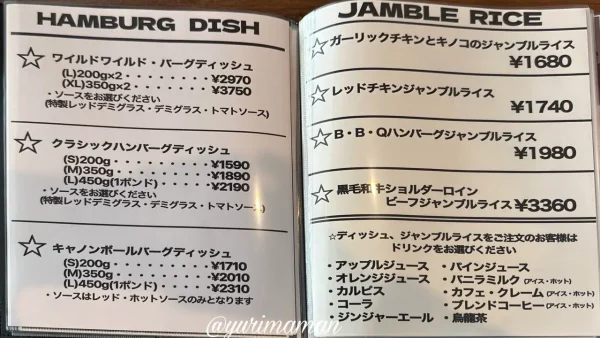 HAMBURG DISH
☆ ワイルドワイルド・バーグディッシュ
(L)200g×2・・・・・・・・¥2970
(XL)350g×2・・・・・・・・¥3750
・ソースをお選びください
(特製レッドデミグラス・デミグラス・トマトソース)
☆ クラシックハンバーグディッシュ
(S)200g・・・・・・・・・¥1590
(M)350g・・・・・・・・・¥1890
(L)450g(1ポンド)・・・・・¥2190
・ソースをお選びください
(特製レッドデミグラス・デミグラス・トマトソース)
☆ キャノンボールバーグディッシュ
(S)200g・・・・・・・・・¥1710
(M)350g・・・・・・・・・¥2010
(L)450g(1ポンド)・・・・・¥2310
・ソースはレッド・ホットソースのみとなります
JAMBLE RICE
☆ガーリックチキンとキノコのジャンブルライス
¥1680
☆レッドチキンジャンブルライス
¥1740
☆B・B・Qハンバーグジャンブルライス
¥1980
☆黒毛和牛ショルダーロイン
ビーフジャンブルライス ¥3360
☆ディッシュ、ジャンブルライスをご注文のお客様は
ドリンクをお選びください
・アップルジュース ・パインジュース
・オレンジジュース ・バニラミルク(アイス・ホット)
・カルピス ・カフェ・クレーム(アイス・ホット)
・コーラ ・ブレンドコーヒー(アイス・ホット)
・ジンジャーエール ・烏龍茶
@yurimaman